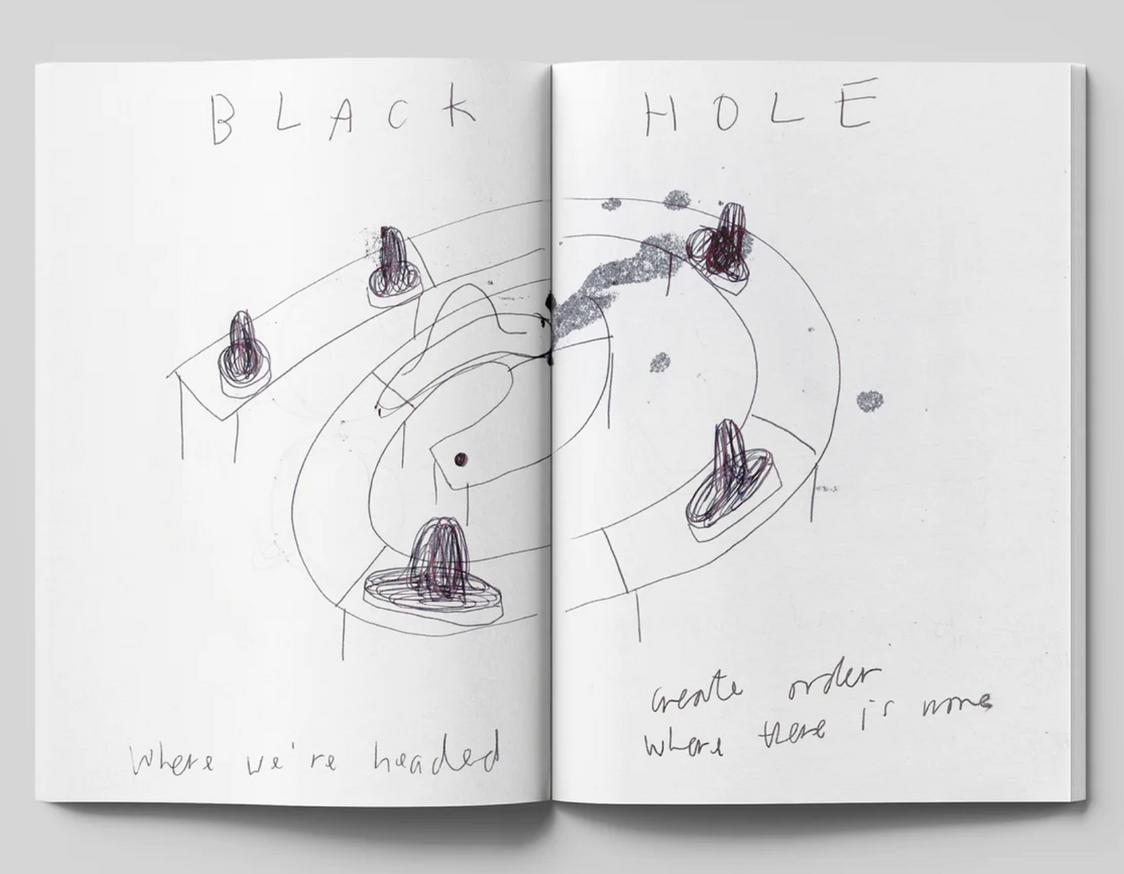 BLACK HOLE
where we're headed
create order
where there is none